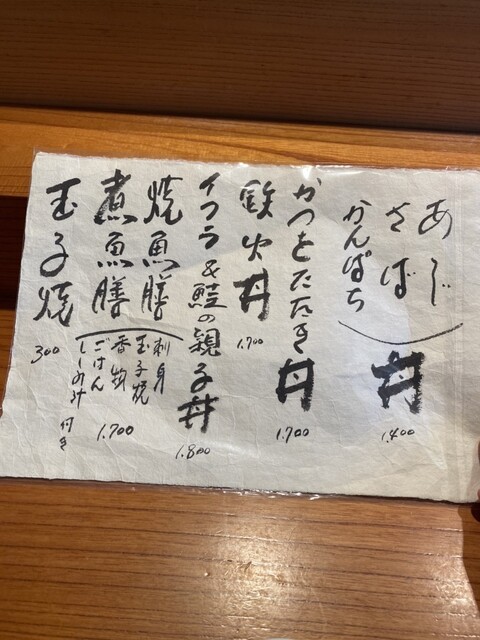 あじ
さば
かんぱち
丼
1.400
かつをたたき丼
1.700
鉄火丼
1.700
イクラ&鮭の親子丼
1.800
焼魚膳
煮魚膳
刺身
玉子焼
香物
ごはん
しじみ汁
付き
1.700
玉子焼
300